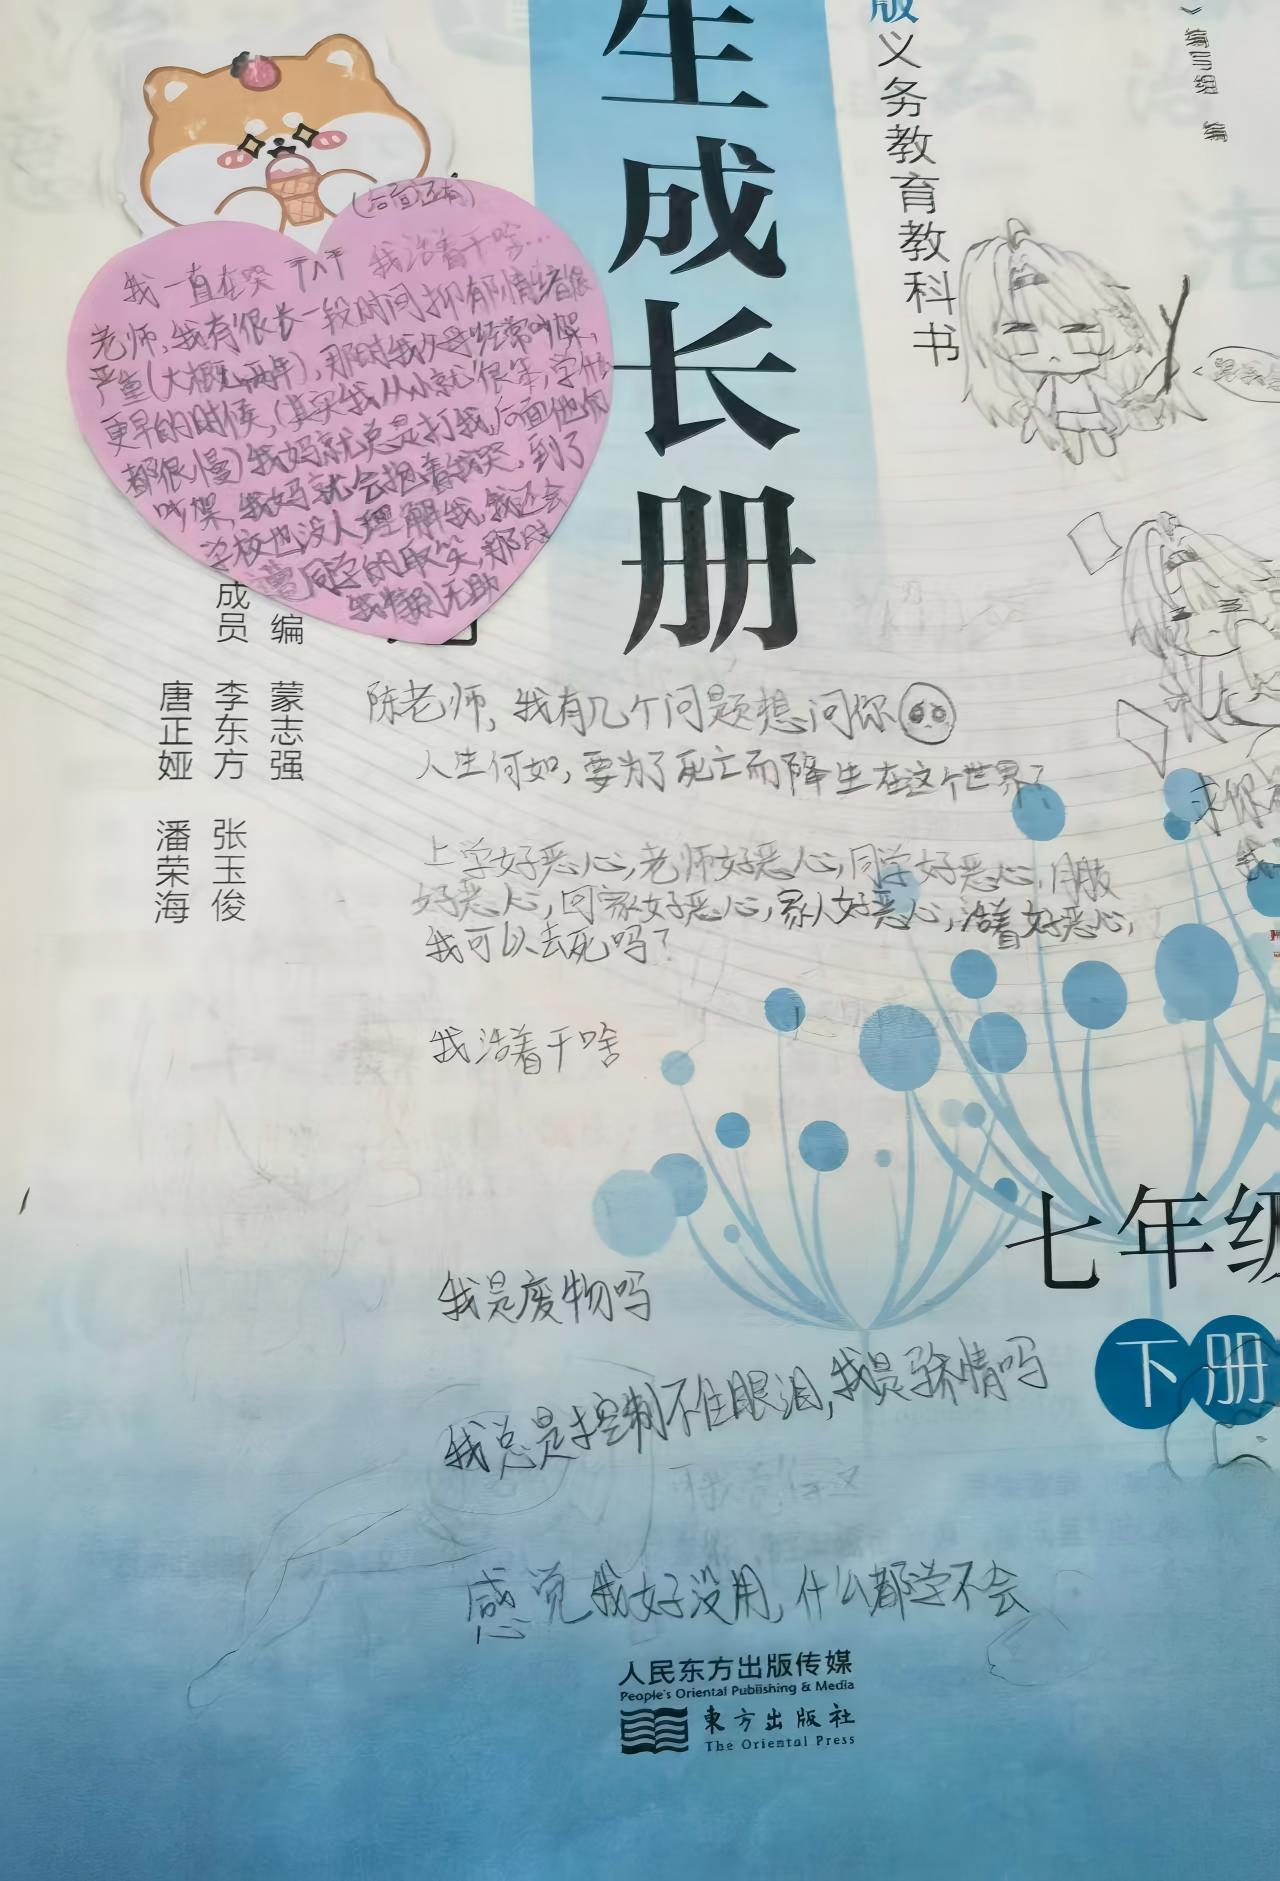 生成长册
版义务教育教科书
编写组 编
(后面还有)
我一直在哭 TAT 我活着干啥…
老师,我有很长一段时间抑郁情绪很
严重(大概两年),那时我父母经常吵架,
更早的时候,(其实我从小就很笨,学什么
都很慢)我妈就总是打我,后面他们
吵架,我妈就会抱着我哭,到了
学校也没人理解我,我还会
遭同学的取笑,那时
我很无助
编
成员
蒙志强
李东方
唐正娅
张玉俊
潘荣海
陈老师,我有几个问题想问你
人生何如,要为了死亡而降生在这个世界?
上学好恶心,老师好恶心,同学好恶心,
好恶心,回家好恶心,家人好恶心,活着好恶心,
我可以去死吗?
我活着干啥
求你
我
七年级
下册
我是废物吗
我总是控制不住眼泪,我是矫情吗
感觉我好没用,什么都学不会
人民东方出版传媒
People's Oriental Publishing & Media
東方出版社
The Oriental Press